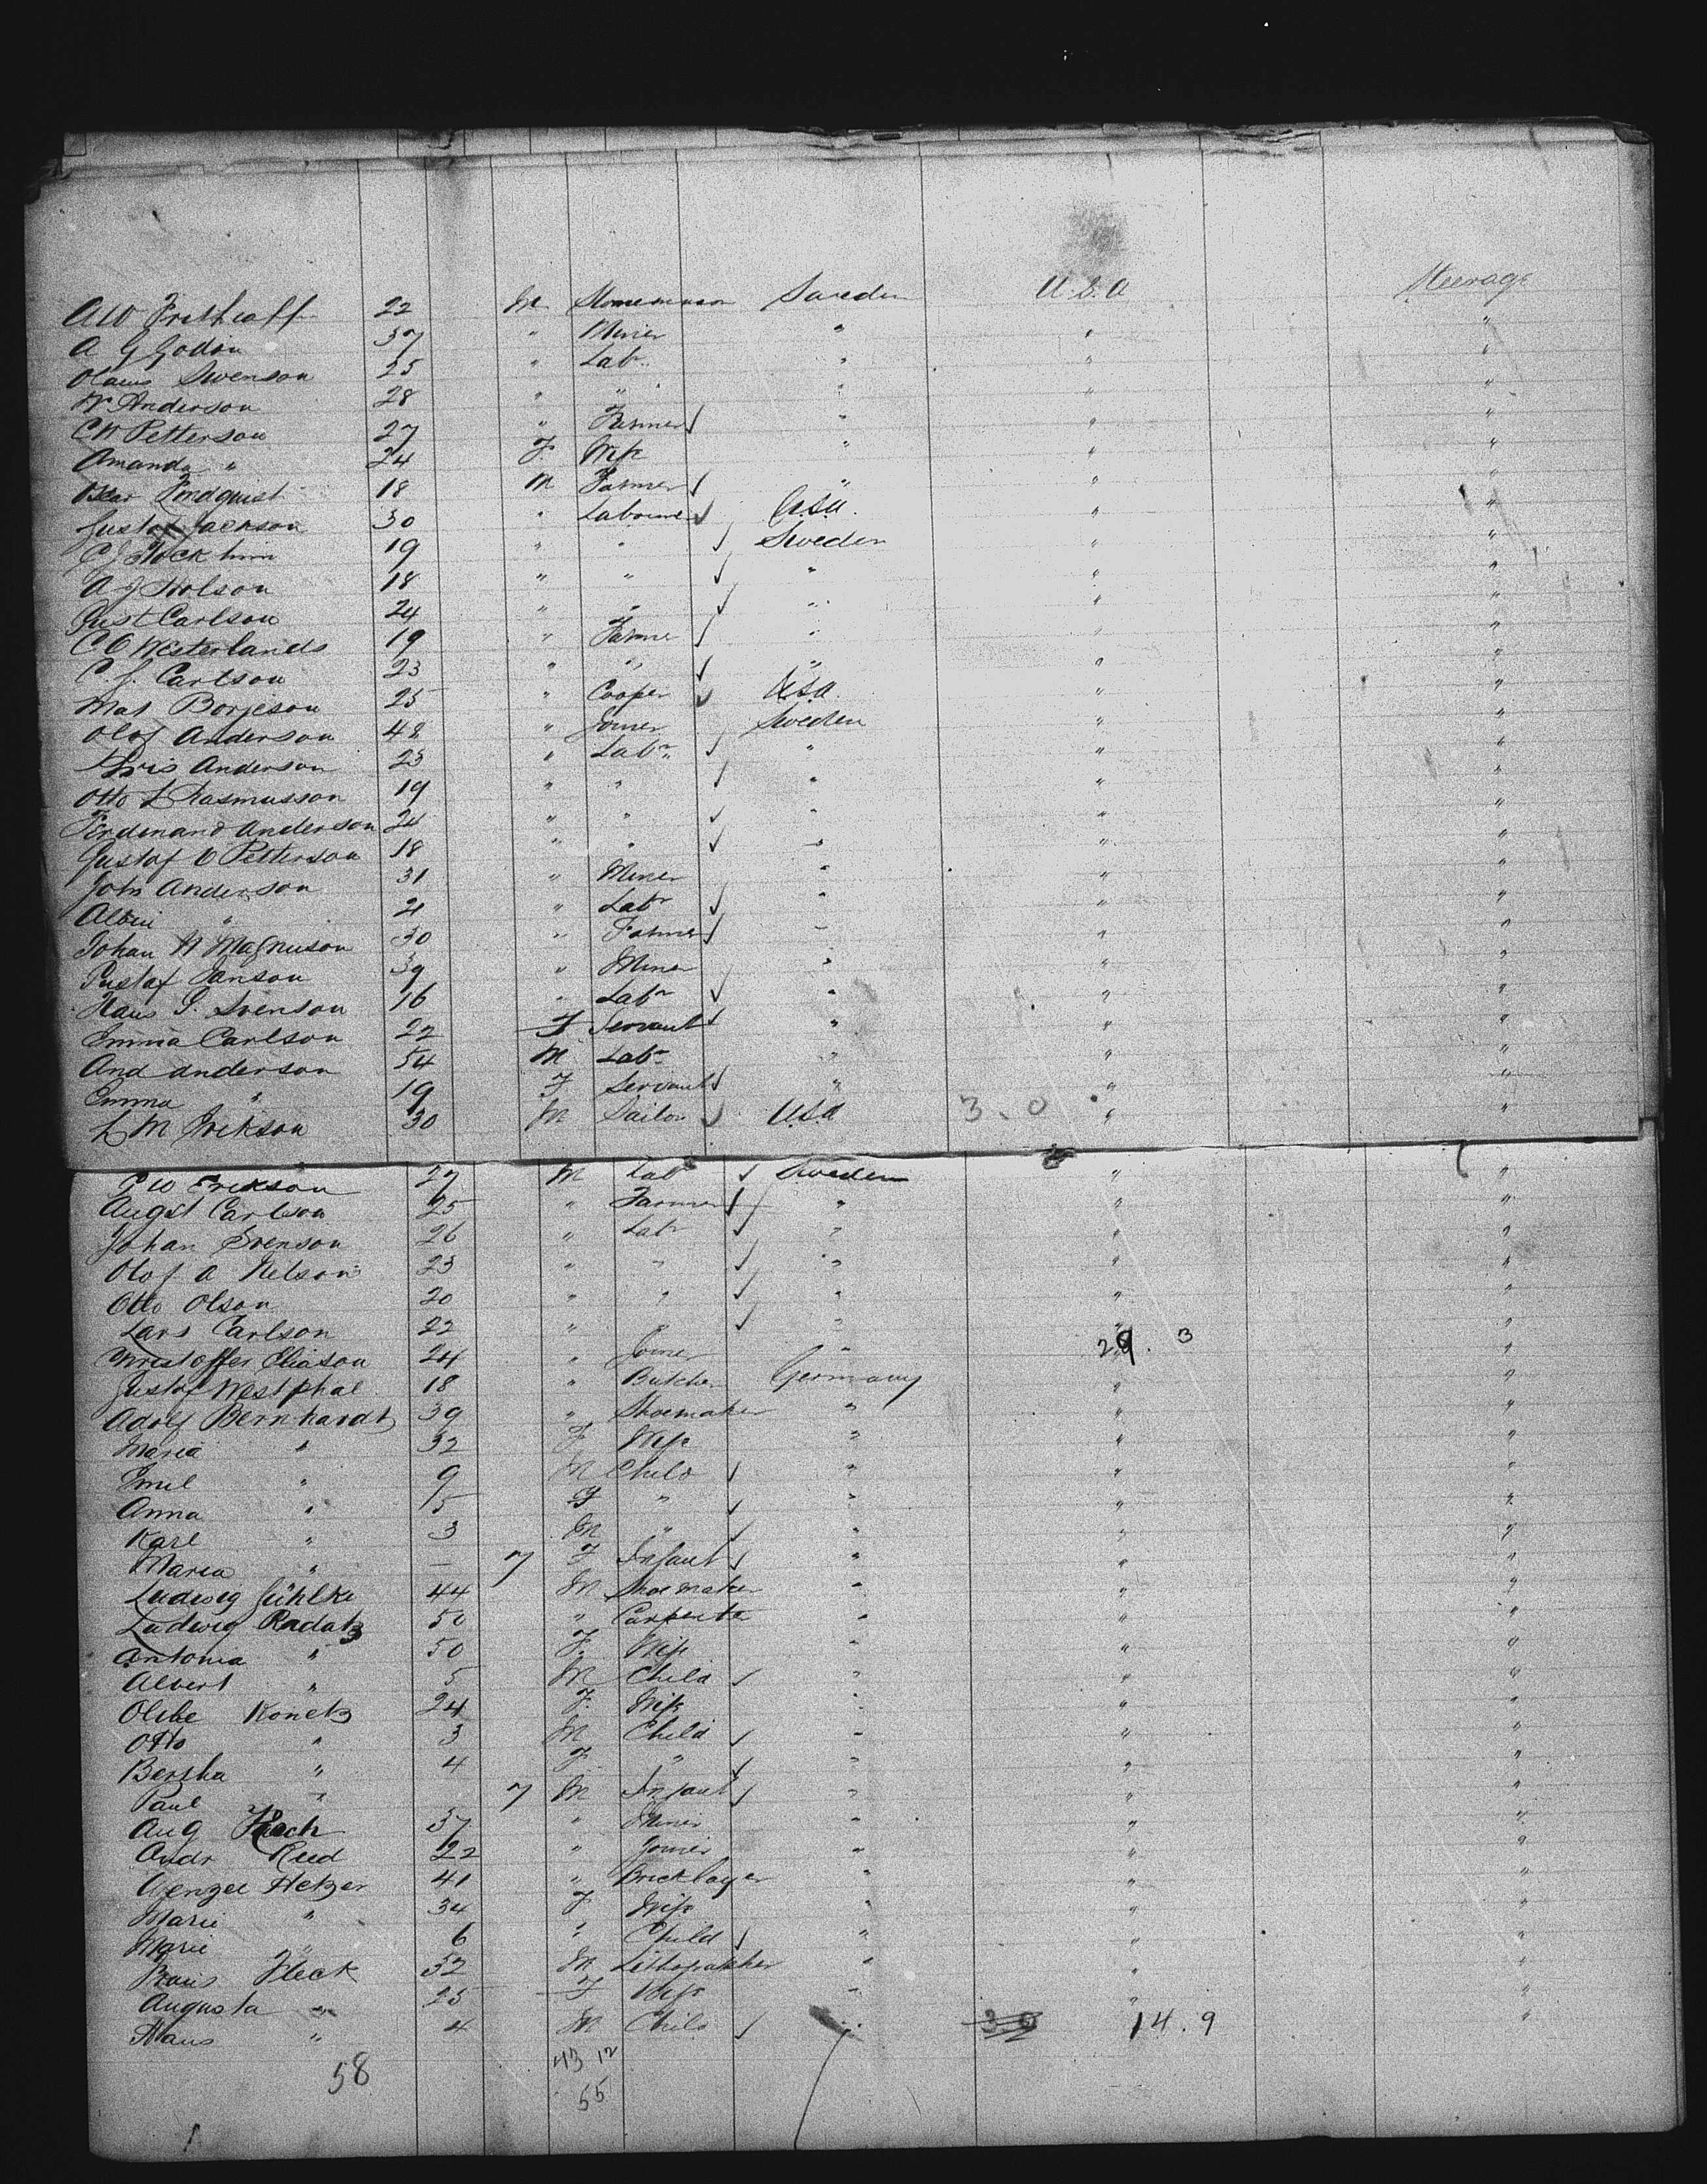 AW Frithioff 22 M Stonemason Sweden U.S.A Steerage
A G Godin 37 " Miner " " "
Olaus Swenson 25 " Labr " " "
W Anderson 28 " " " " "
CW Petterson 27 " Farmer " " "
Amanda " 24 F Wife " " "
Oscar Lindquist 18 M Farmer " " "
Gustaf Jackson 30 " Labourer U.S.A. " "
C J 19 " " Sweden " "
A J 18 " " " " "
Gust Carlson 24 " " " " "
C O Westerlands 19 " Farmer " " "
C. J. Carlson 23 " " " " "
Mat Borjeson 25 " Cooper U.S.A. " "
Olof Anderson 48 " Joiner Sweden " "
Chris Anderson 23 " Labr " " "
Otto L Rasmusson 19 " " " " "
Ferdinand Anderson 24 " " " " "
Gustaf O Petterson 18 " " " " "
John Anderson 31 " Miner " " "
Albin " 21 " Labr " " "
Johan N Magnuson 30 " Farmer " " "
Gustaf Janson 39 " Miner " " "
Hans G. Svenson 16 " Labr " " "
Emma Carlson 22 F Servant " " "
And Anderson 54 M Labr " " "
Emma " 19 F Servant " " "
L M Erikson 30 M Sailor U.S.A 3.0 " "
C W Erikson 27 M Labr Sweden " "
Augst Carlson 25 " Farmer " " "
Johan Svenson 26 " Labr " " "
Olof A Nelson 23 " " " " "
Otto Olson 20 " " " " "
Lars Carlson 22 " " " " "
Christoffer Eliason 24 " Joiner " 29.3 "
Gustaf Westphal 18 " Butcher Germany " "
Adolf Bernhardt 39 " Shoemaker " " "
Maria " 32 F Wife " " "
Emil " 9 M Child " " "
Anna " 5 F " " " "
Karl " 3 M " " " "
Maria " – 7 F Infant " " "
Ludwig Gühlke 44 M Shoemaker " " "
Ludwig Radatz 50 " Carpenter " " "
Antonia " 50 F. Wife " " "
Albert " 5 M Child " " "
Konetz 24 F. Wife " " "
Otto " 3 M Child " " "
Bertha " 4 F " " " "
Paul " 7 M Infant " " "
Aug 37 " Miner " " "
Andr Reed 22 " Joiner " " "
Wenzel Hetzer 41 " Bricklayer " " "
Marie " 34 F Wife " " "
Marie " 6 " Child " " "
Fleck 32 M " " "
Augusta " 25 F Wife " " "
Hans " 4 M Child " 30 14.9
58 43 12
55